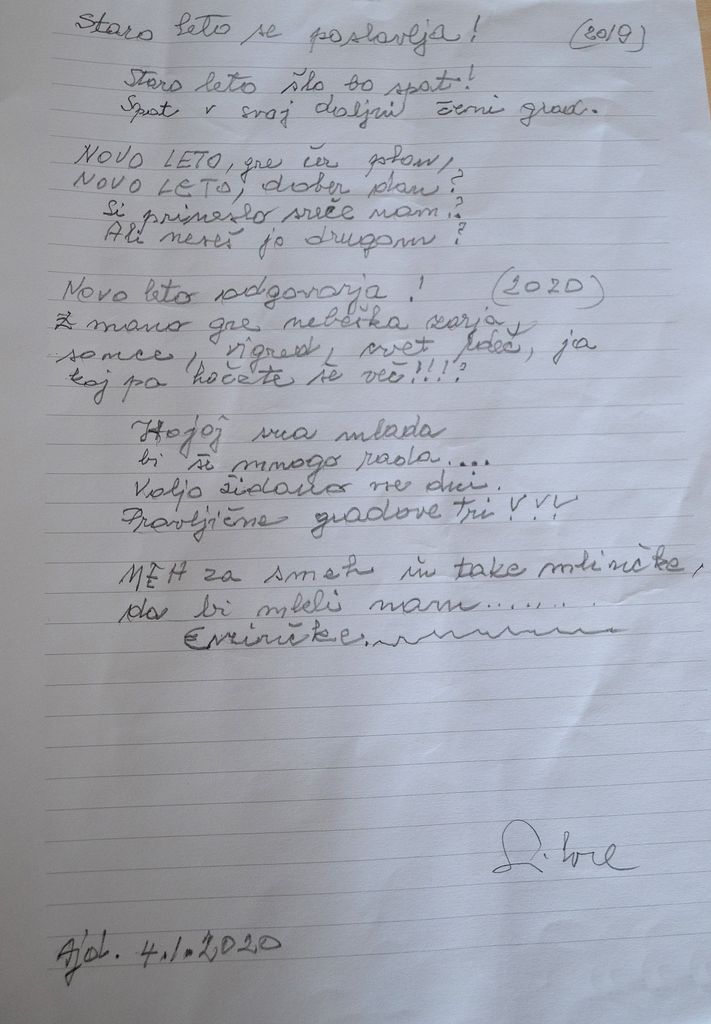 Staro leto se poslavlja! (2019)
Staro leto šlo bo spat!
Spat v svoj daljni černi grad.
NOVO LETO, gre čez plan,
NOVO LETO, dober dan?
Si prineslo sreče nam?
Ali neseš jo drugam?
Novo leto odgovarja! (2020)
Z mano gre nebeška zarja,
sonce, vigred, cvet rdeč, ja
kaj pa hočete še več!!!?
Hojoj srca mlada
bi še mnogo rada....
Voljo židano vse dni.
Pravljične gradove tri!!!
MEH za smeh in take mlinčke,
da bi mleli nam.......
Ajd. 4.1.2020